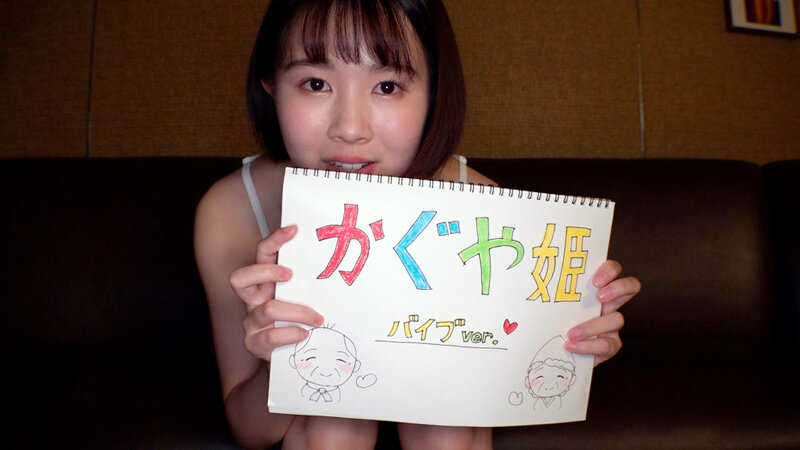 かぐや姫
バイブver.